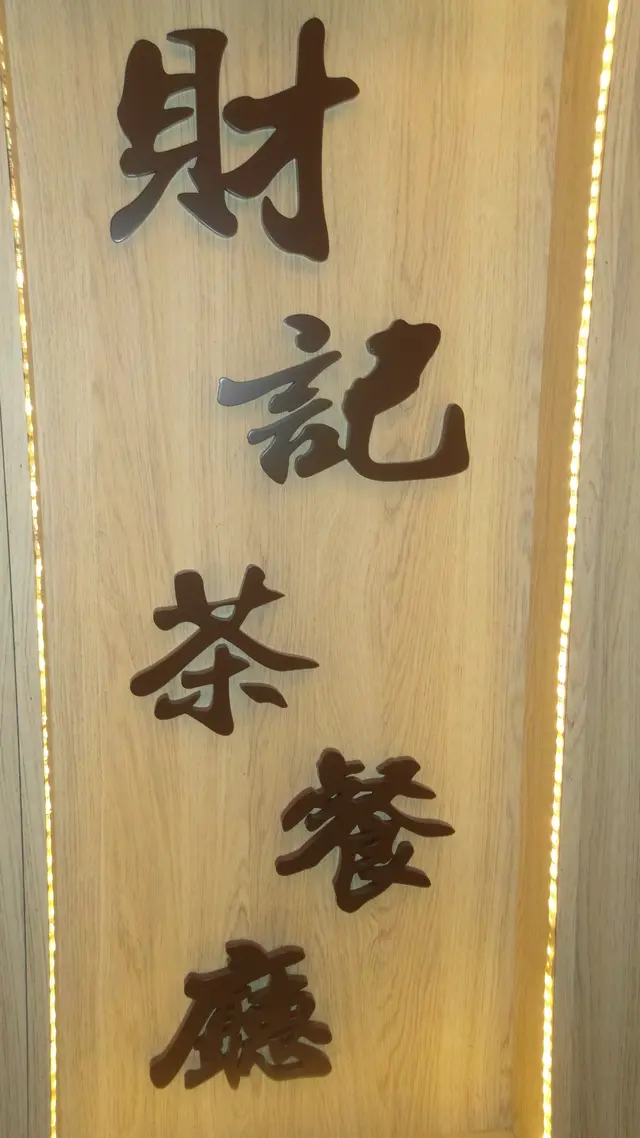 財記茶餐廳